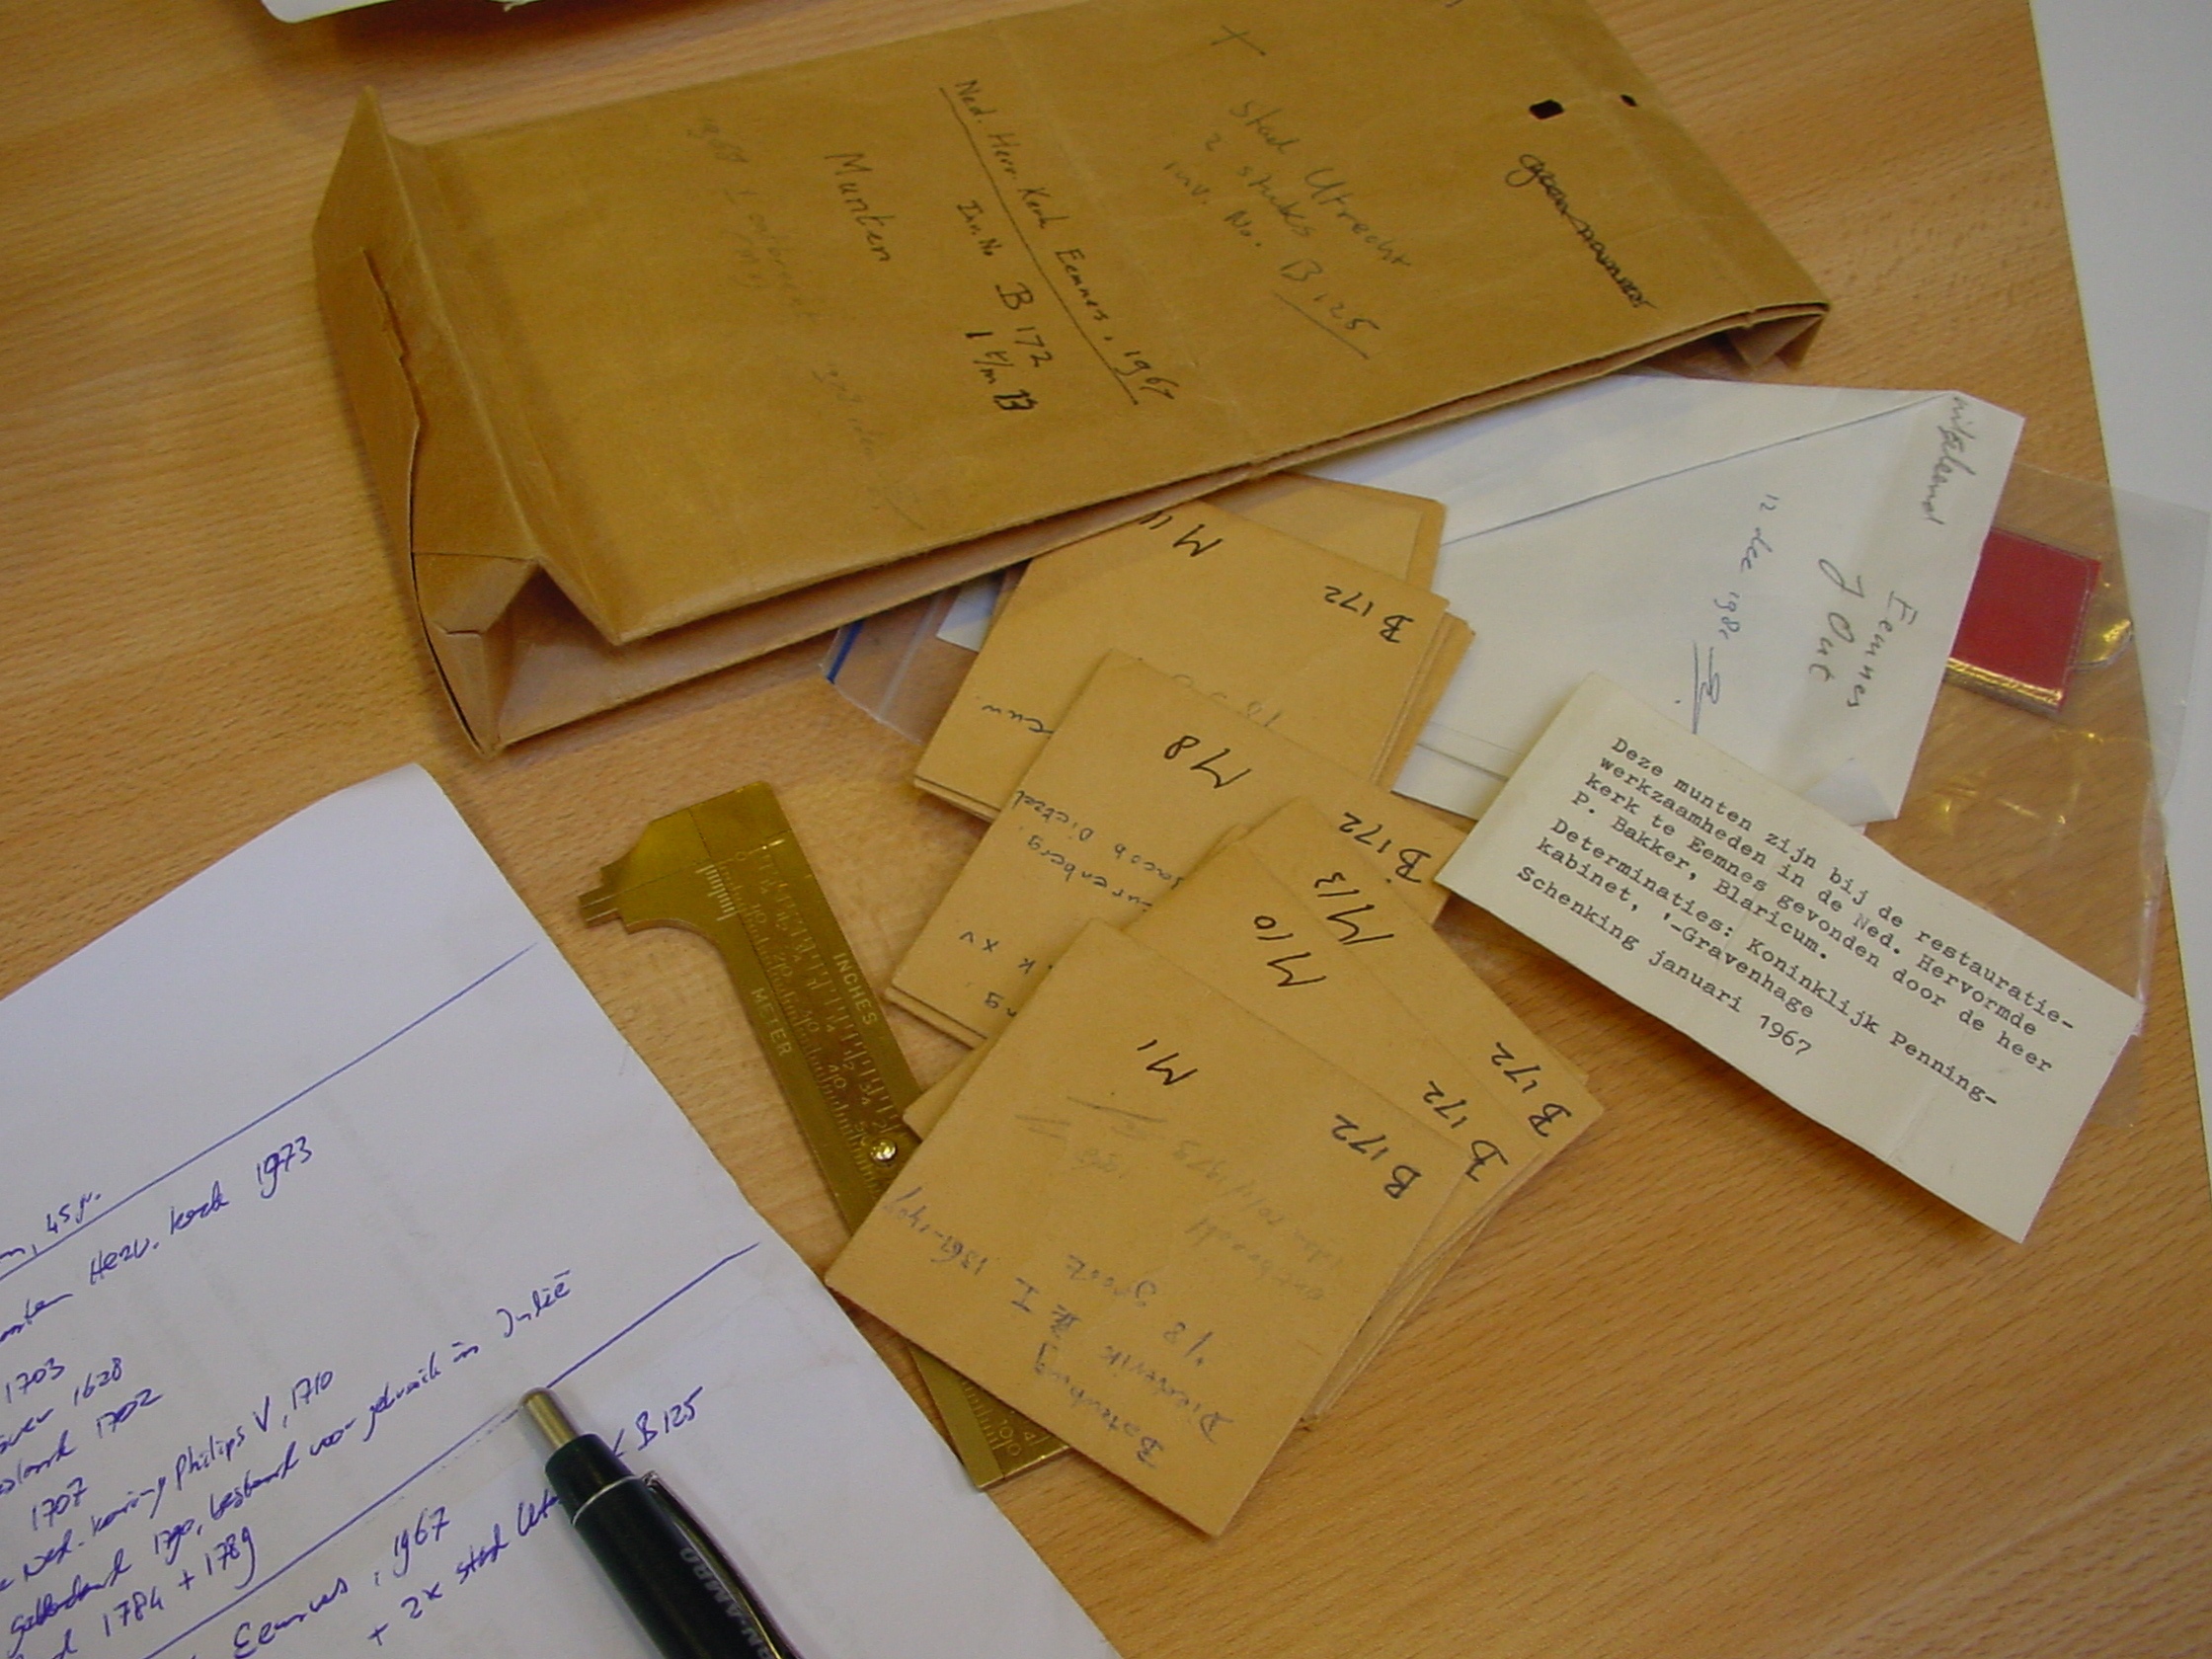 geen nummer
+
Stad Utrecht
2 stuks
inv. No. B 125
Ned. Herv. Kerk Eemnes, 1967
Inv. No B 172
1 t/m 13
Munten
Eemnes
J Out
12 dec
Deze munten zijn bij de restauratie-
werkzaamheden in de Ned. Hervormde
kerk te Eemnes gevonden door de heer
P. Bakker, Blaricum.
Determinaties: Koninklijk Penning-
kabinet, '-Gravenhage
Schenking januari 1967
B 172
M 11
B 172
M 8
Jacob Dietzel
B 172
M 13
B 172
M 10
B 172
M 1
Batenburg
Diederik
1/8 groot
1361-1404
INCHES
METER
45 gr.
Herv. kerk 1973
1703
1628
1702
1707
Ned. koning Philips V, 1710
Gelderland 1790, bestemd voor gebruik in Indië
1784 + 1789
Eemnes, 1967
+ 2x stad B 125
N-AMRO